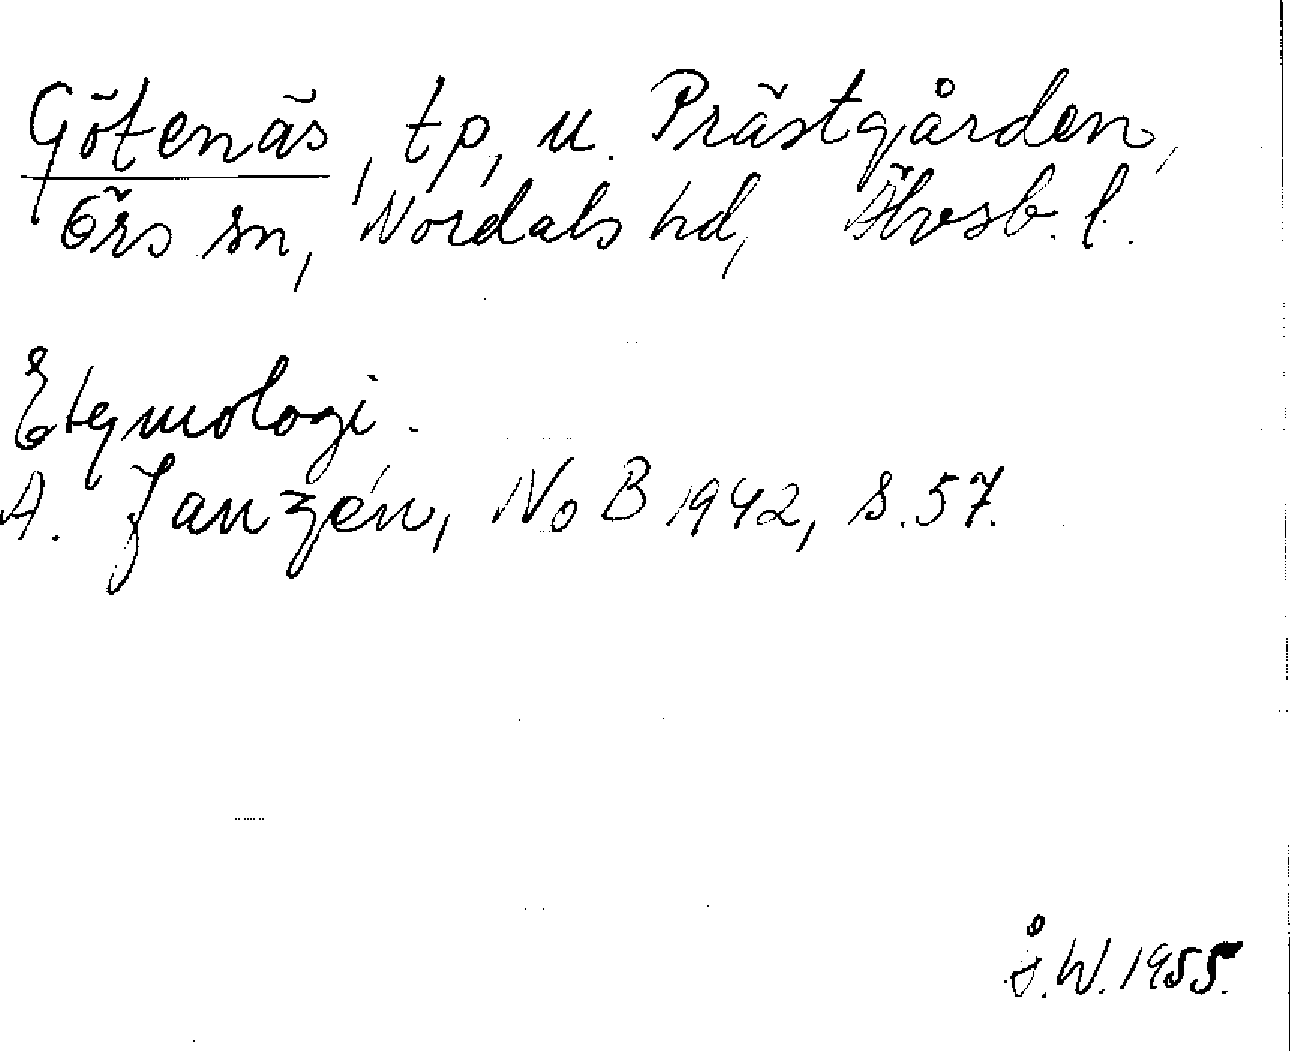 Götenäs, tp, u. Prästgården,
Örs sn, Nordals hd, Älvsb. l.
Etymologi.
A. Janzén, NoB 1942, s. 57.
Å.W. 1955.